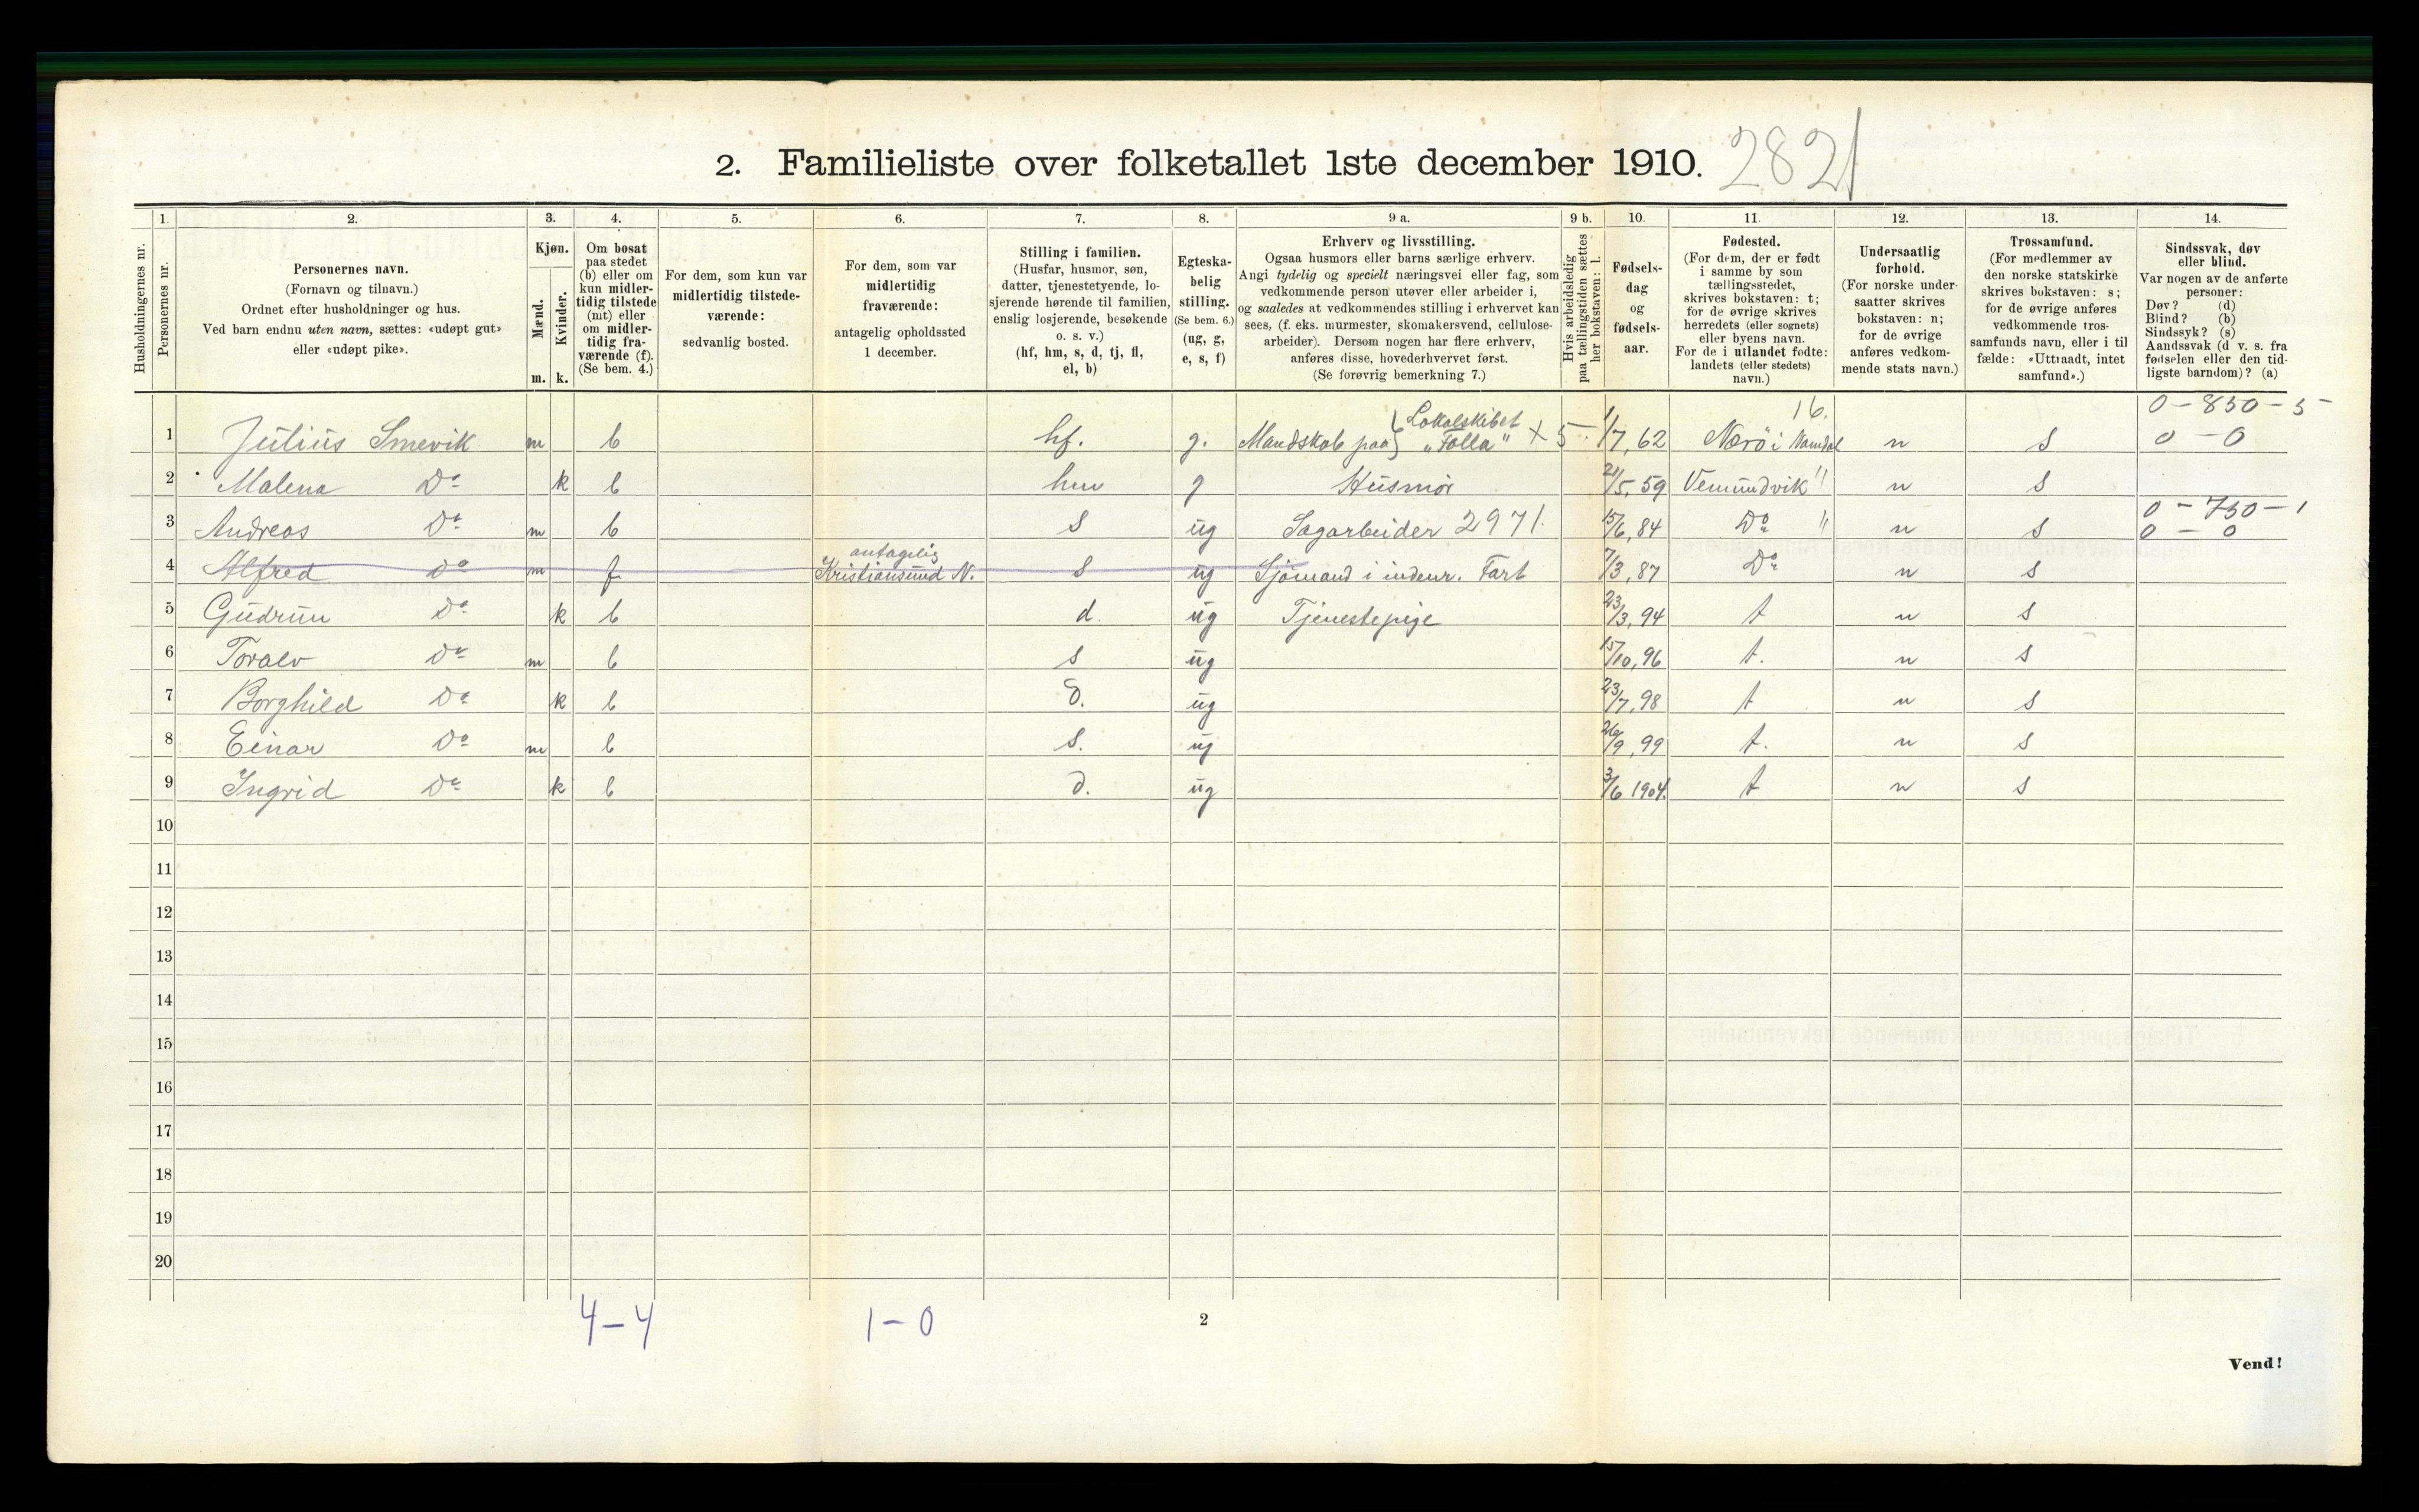 2. Familieliste over folketallet 1ste december 1910. 2821
Husholdningernes nr.
1.
Personernes nr.
2.
Personernes navn.
(Fornavn og tilnavn.)
Ordnet efter husholdninger og hus.
Ved barn endnu uten navn, sættes: «udøpt gut»
eller «udøpt pike».
3.
Kjøn.
Mænd.
Kvinder.
m. k.
4.
Om bosat
paa stedet
(b) eller om
kun midler-
tidig tilstede
(mt) eller
om midler-
tidig fra-
værende (f).
(Se bem. 4.)
5.
For dem, som kun var
midlertidig tilstede-
værende:
sedvanlig bosted.
6.
For dem, som var
midlertidig
fraværende:
antagelig opholdssted
1 december.
7.
Stilling i familien.
(Husfar, husmor, søn,
datter, tjenestetyende, lo-
sjerende hørende til familien,
enslig losjerende, besøkende
o. s. v.)
(hf, hm, s, d, tj, fl,
el, b)
8.
Egteska-
belig
stilling.
(Se bem. 6.)
(ug, g,
e, s, f)
9 a.
Erhverv og livsstilling.
Ogsaa husmors eller barns særlige erhverv.
Angi tydelig og specielt næringsvei eller fag, som
vedkommende person utøver eller arbeider i,
og saaledes at vedkommendes stilling i erhvervet kan
sees, (f. eks. murmester, skomakersvend, cellulose-
arbeider). Dersom nogen har flere erhverv,
anføres disse, hovederhvervet først.
(Se forøvrig bemerkning 7.)
9 b.
Hvis arbeidsledig
paa tællingstiden sættes
her bokstaven: l.
10.
Fødsels-
dag
og
fødsels-
aar.
11.
Fødested.
(For dem, der er født
i samme by som
tællingsstedet,
skrives bokstaven: t;
for de øvrige skrives
herredets (eller sognets)
eller byens navn.
For de i utlandet fødte:
landets (eller stedets)
navn.)
12.
Undersaatlig
forhold.
(For norske under-
saatter skrives
bokstaven: n;
for de øvrige
anføres vedkom-
mende stats navn.)
13.
Trossamfund.
(For medlemmer av
den norske statskirke
skrives bokstaven: s;
for de øvrige anføres
vedkommende tros-
samfunds navn, eller i til
fælde: «Uttraadt, intet
samfund».)
14.
Sindssvak, døv
eller blind.
Var nogen av de anførte
personer:
Døv? (d)
Blind? (b)
Sindssyk? (s)
Aandssvak (d v. s. fra
fødselen eller den tid-
ligste barndom)? (a)
Lokalskibet 16. 0-850-5
1 Julius Smevik m b hf. g. Mandskab paa „Folla" X 5 1/7, 62 Nærö i Namdal n s 0-0
2 Malena Do k b hm g Husmor 21/5, 59 Vemundvik " n s
0-750-1
3 Andreas Do m b s ug Sagarbeider 2971. 15/6, 84 Do " n s 0-0
antagelig
4 Alfred Do m f Kristiansund N. s ug Sjömand i indenr. Fart 7/3, 87 Do n s
5 Gudrun Do k b d. ug Tjenestepige 23/3, 94 t n s
6 Toralv Do m b s ug 15/10, 96 t. n s
7 Borghild Do k b d. ug 23/7, 98 t n s
8 Einar Do m b s. ug 26/9, 99 t. n s
9 Ingrid Do k b d. ug 3/6 1904. t n s
10
11
12
13
14
15
16
17
18
19
20
4-4 1-0 2
Vend!